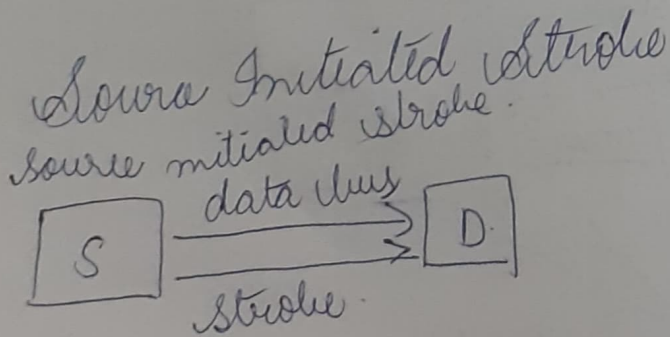 Source Initiated Strobe
source initiated strobe.
data bus
S
D.
strobe.